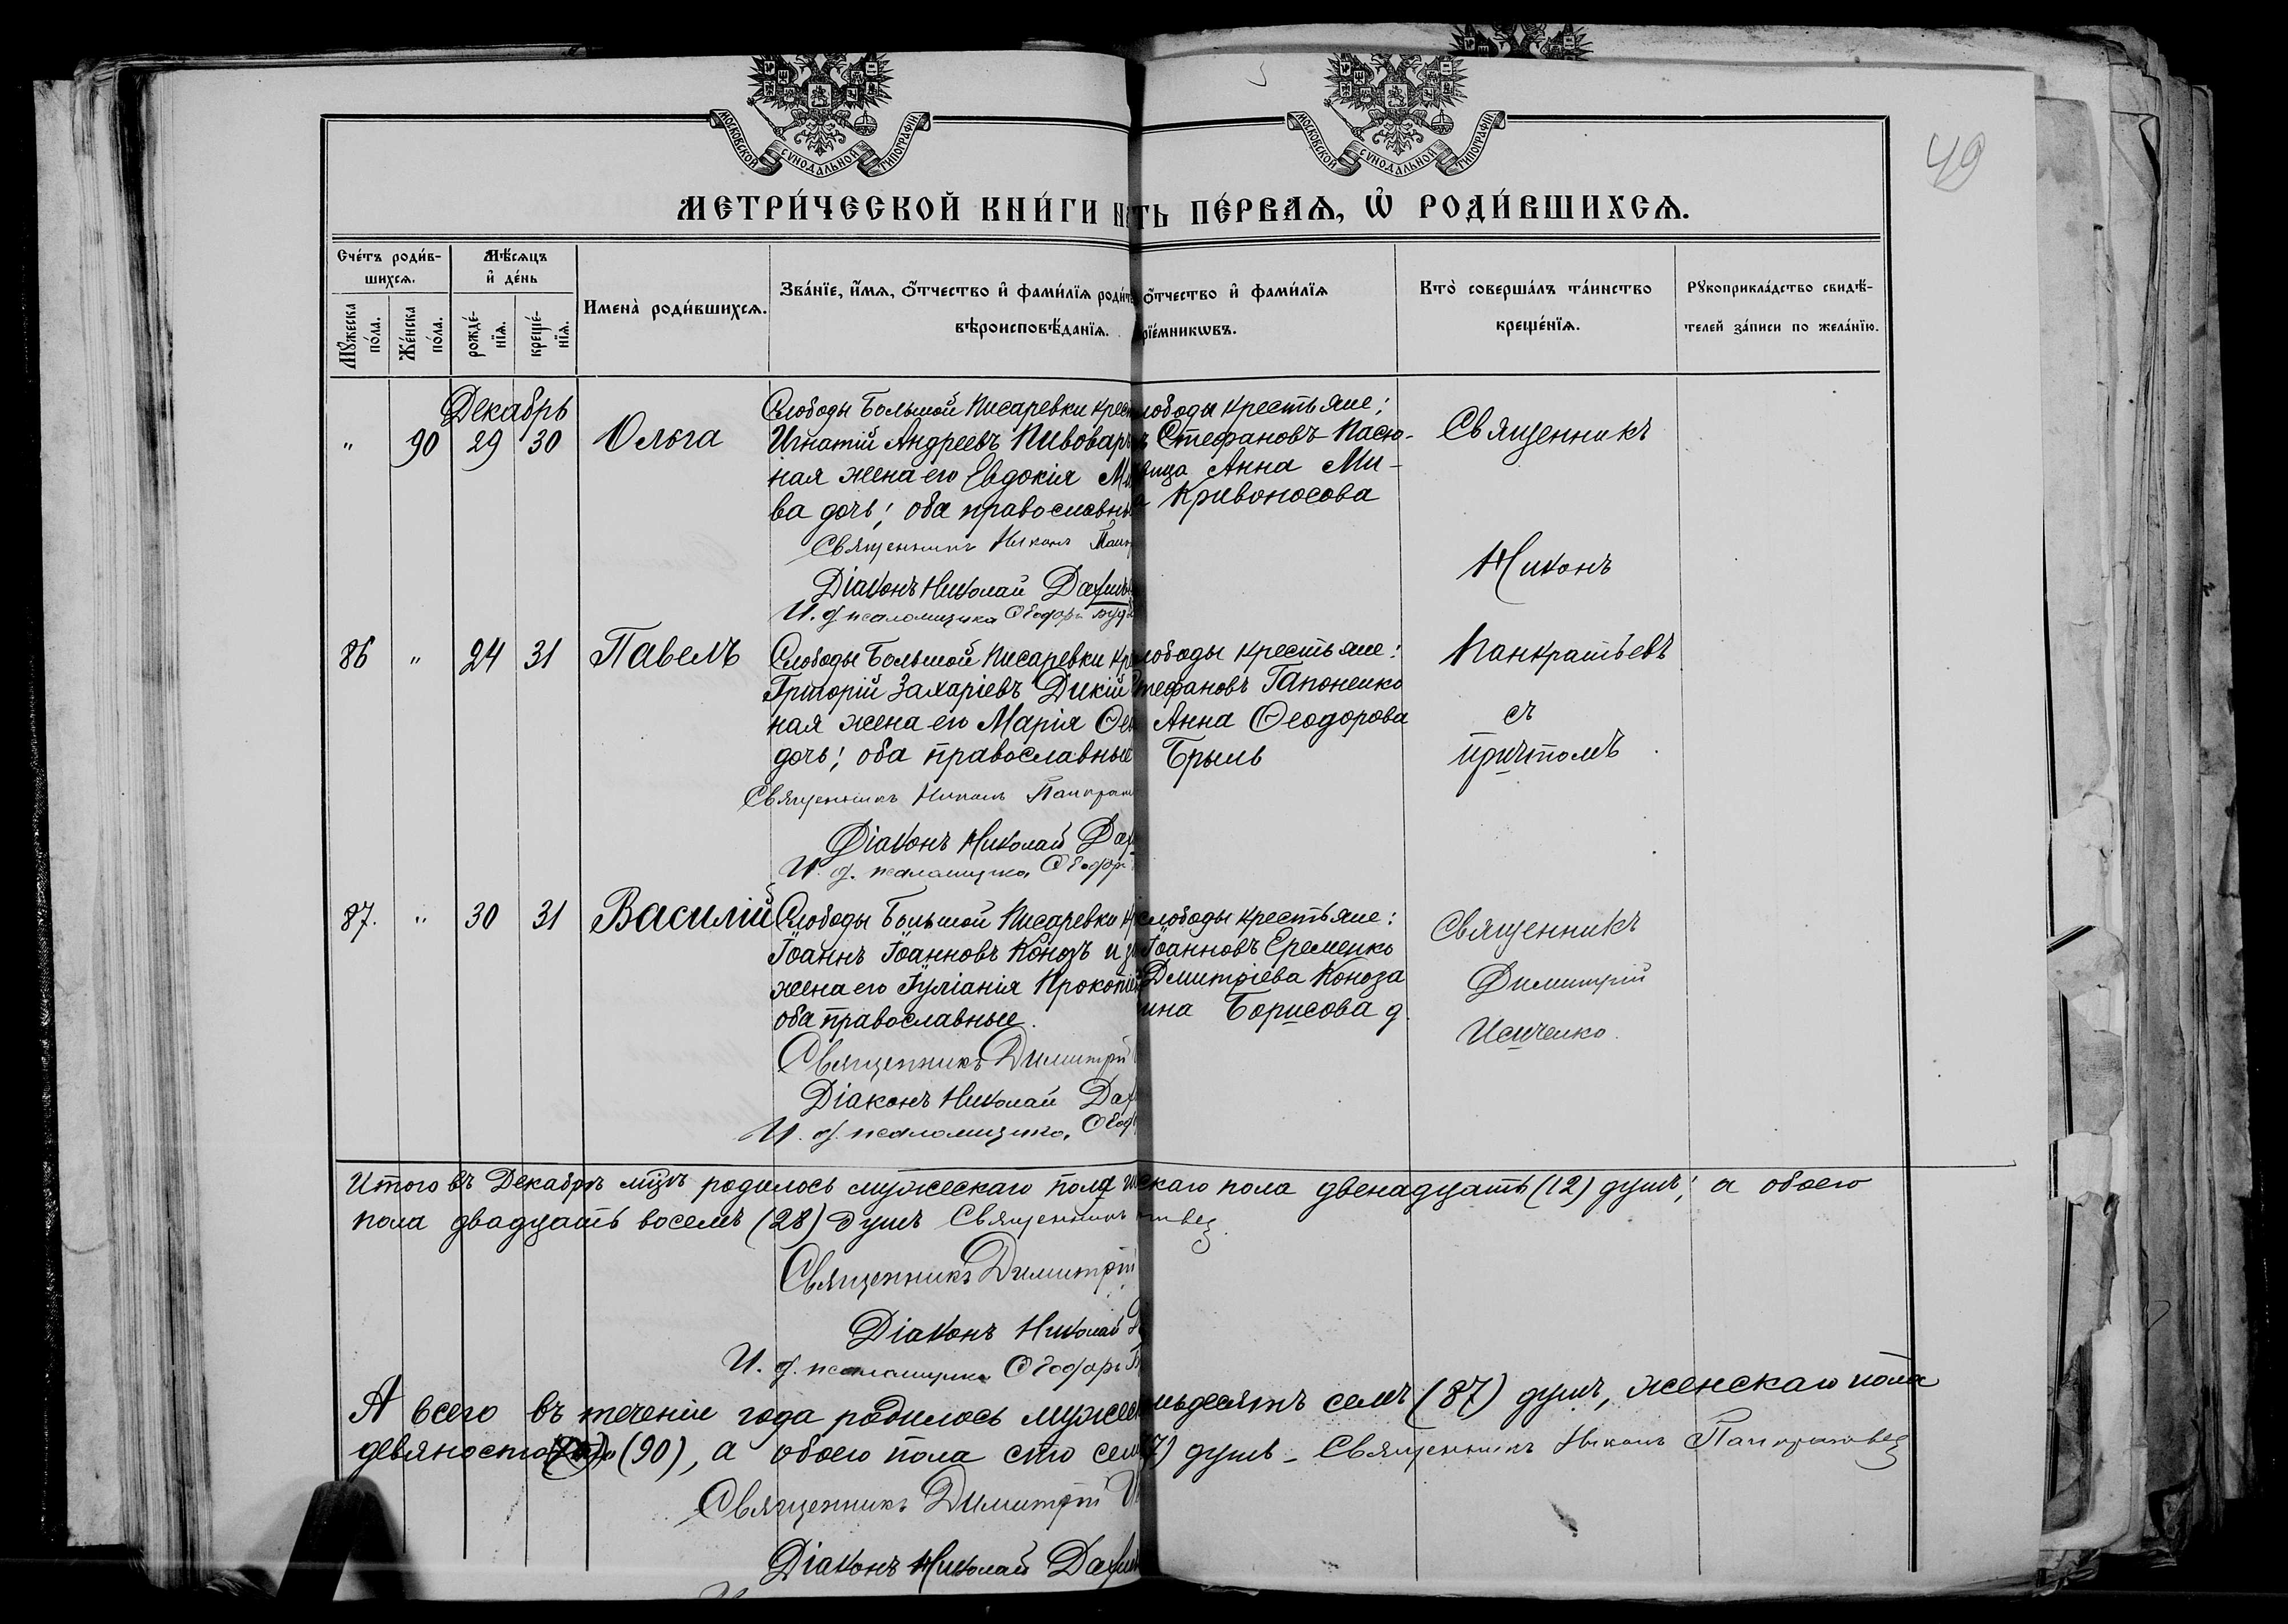 49
МОСКОВСКОЙ СУНОДАЛЬНОЙ ТИПОГРАФІИ
МОСКОВСКОЙ СУНОДАЛЬНОЙ ТИПОГРАФІИ
МЕТРИ́ЧЕСКОЙ КНИ́ГИ
ТЬ ПЕ́РВАѦ, Ѡ҆ РОДИ́ВШИХСѦ.
Сче́тъ роди́в-
шихсѧ.
Мꙋ́жеска по́ла.
Же́нска по́ла.
Мѣ́сѧцъ
и҆ де́нь
рожде́-
нїѧ.
креще́-
нїѧ.
Имена̀ роди́вшихсѧ.
Зва́нїе, и҆́мѧ, ѻ҆́тчество и҆ фами́лїѧ роди́т
вѣроисповѣ́данїѧ.
ѻ҆́тчество и҆ фами́лїѧ
рїе́мникѡвъ.
Кто̀ соверша́лъ та́инство
креще́нїѧ.
Рꙋкоприкла́дство свидѣ́-
телей за́писи по жела́нїю.
Декабрь
" 90 29 30 Ольга
Слободы Большой Писаревки крест
Игнатій Андреевъ Пивоваръ
ная жена его Евдокія М
ва дочь; оба православны
Священникъ Никонъ Панк
Діаконъ Николай Дах
И. д. псаломщика Ѳеодоръ
лободы крестьяне;
Стефановъ Пасю-
вица Анна Ми-
Кривоносова
Священникъ
Никонъ
Панкратьевъ
съ
причтомъ
86 " 24 31 Павелъ
Слободы Большой Писаревки кре
Григорій Захаріевъ Дикій
ная жена его Марія Ѳео
дочь; оба православные
Священникъ Никонъ Панкрат
Діаконъ Николай Дах
И. д. псаломщика Ѳеодор
лободы крестьяне:
тефановъ Гапоненко
Анна Ѳеодорова
Брыль
87. " 30 31 Василій
Слободы Большой Писаревки кр
Іоаннъ Іоанновъ Конозъ и за
жена его Іуліанія Прокопіе
оба православные.
Священникъ Димитрій
Діаконъ Николай Дах
И. д. псаломщика Ѳеод
слободы крестьяне:
Іоанновъ Еременко
Дмитріева Коноза
ина Борисова д.
Священникъ
Димитрій
Исиченко.
Итого въ Декабрѣ мцѣ родилось мужескаго пола
скаго пола двенадцать (12) душъ; а обоего
пола двадцать восемь (28) душъ Священникъ
Священникъ Димитрій
Діаконъ Николай
И. д. псаломщика Ѳеодоръ
А всего въ теченіе года родилось мужес
мьдесятъ семь (87) душъ, женскаго пола
девяносто (90), а обоего пола сто сем
7) душъ - Священникъ Никонъ Панкратьевъ
Священникъ Димитрій И
Діаконъ Николай Дах